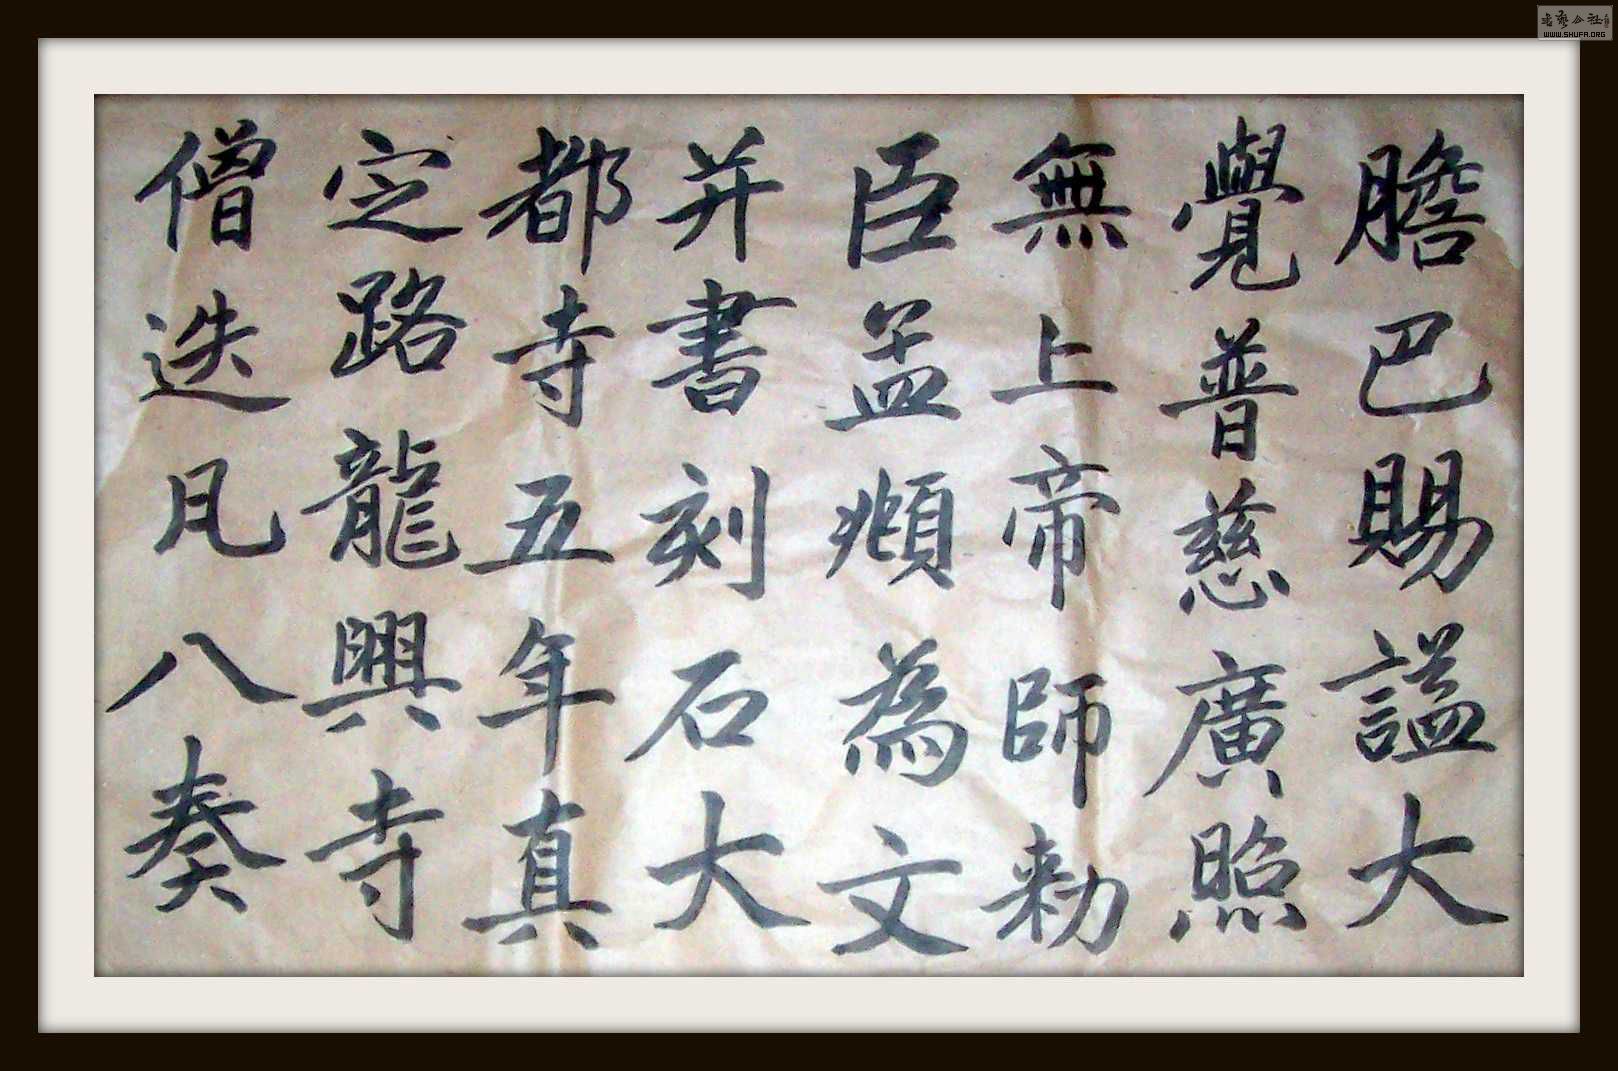 膽巴賜謚大
覺普慈廣照
無上帝師勑
臣孟頫為文
并書刻石大
都寺五年真
定路龍興寺
僧迭凡八奏
WWW.SHUFA.ORG